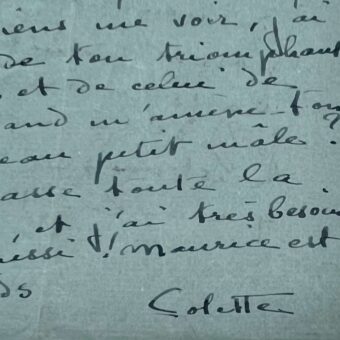 viens me voir, j'ai
de ton triomphant
, et de celui de
and m'amène-t-on
eau petit mâle ?
asse toute la
, et j'ai très besoin
ussi ! Maurice est
ds
Colette